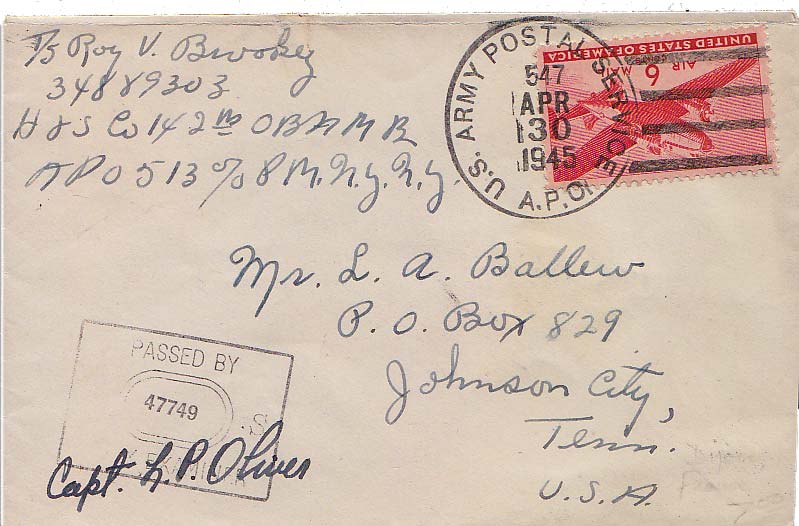 T/5 Roy V. Brookey
34889303
H & S Co 142nd
APO 513 % P.M. N.Y. N.Y.
U.S. ARMY POSTAL SERVICE
547
APR
30
1945
A.P.O.
UNITED STATES OF AMERICA
AIR MAIL
6
Mr. L. A. Ballew
P. O. Box 829
Johnson City,
Tenn.
U.S.A.
PASSED BY
47749
S
Capt. L. P. Oliver